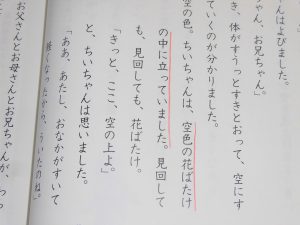 んはよびました。
ちゃん、お兄ちゃん。」
き、体がすうっとすきとおって、空にす
ていくのが分かりました。
空の色。ちいちゃんは、空色の花ばたけ
の中に立っていました。見回して
も、見回しても、花ばたけ。
「きっと、ここ、空の上よ。」
と、ちいちゃんは思いました。
「ああ、あたし、おなかがすいて
軽くなったから、ういたのね。」
お父さんとお母さんとお兄ちゃんが、